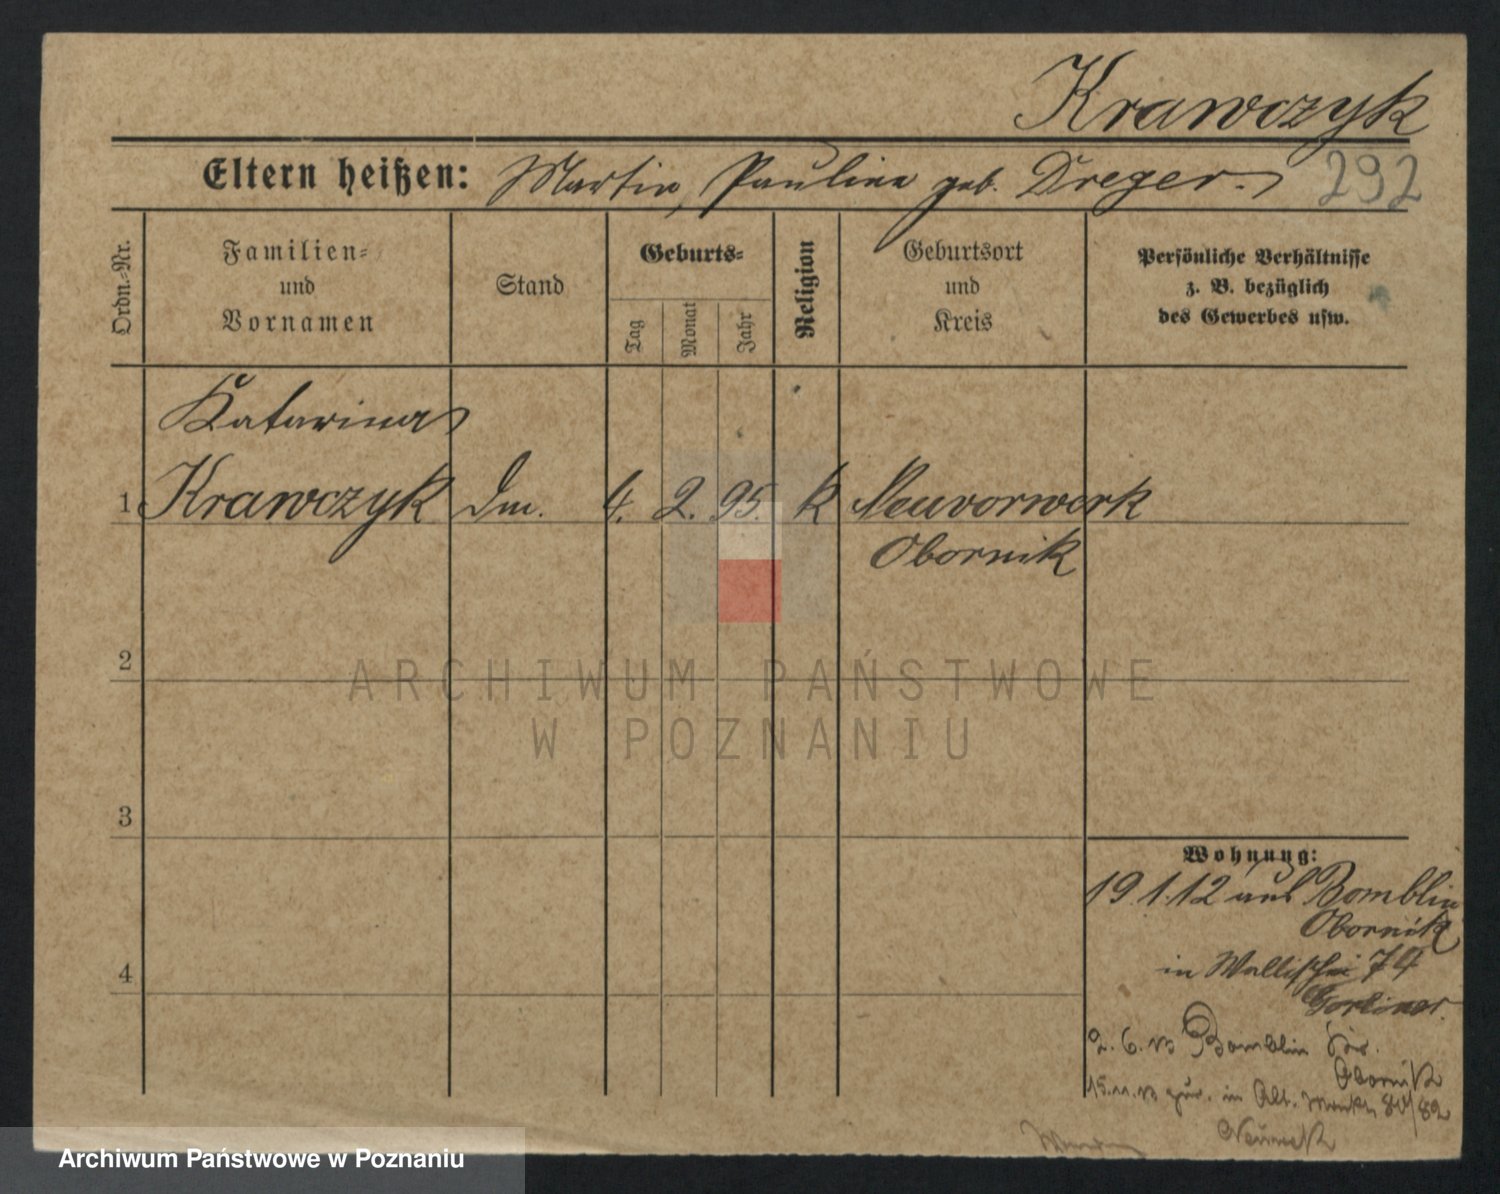 Krawczyk
Eltern heißen: Martin, Pauline geb. Dreger. 292
Ordn.=Nr.
Familien=
und
Vornamen
Stand
Geburts=
Tag
Monat
Jahr
Religion
Geburtsort
und
Kreis
Persönliche Verhältnisse
z. B. bezüglich
des Gewerbes usw.
Katarina
1 Krawczyk Dm. 4. 2. 95. k Neuvorwerk
Obornik
2
ARCHIWUM PAŃSTWOWE
W POZNANIU
3
Wohnung:
19.1.12 aus Bomblin
Obornik
4
in Wallischei 74
2. 6. 13 Bomblin Kr.
Obornik
15.11.13 zur. in Alt. Markt 81/82
Archiwum Państwowe w Poznaniu